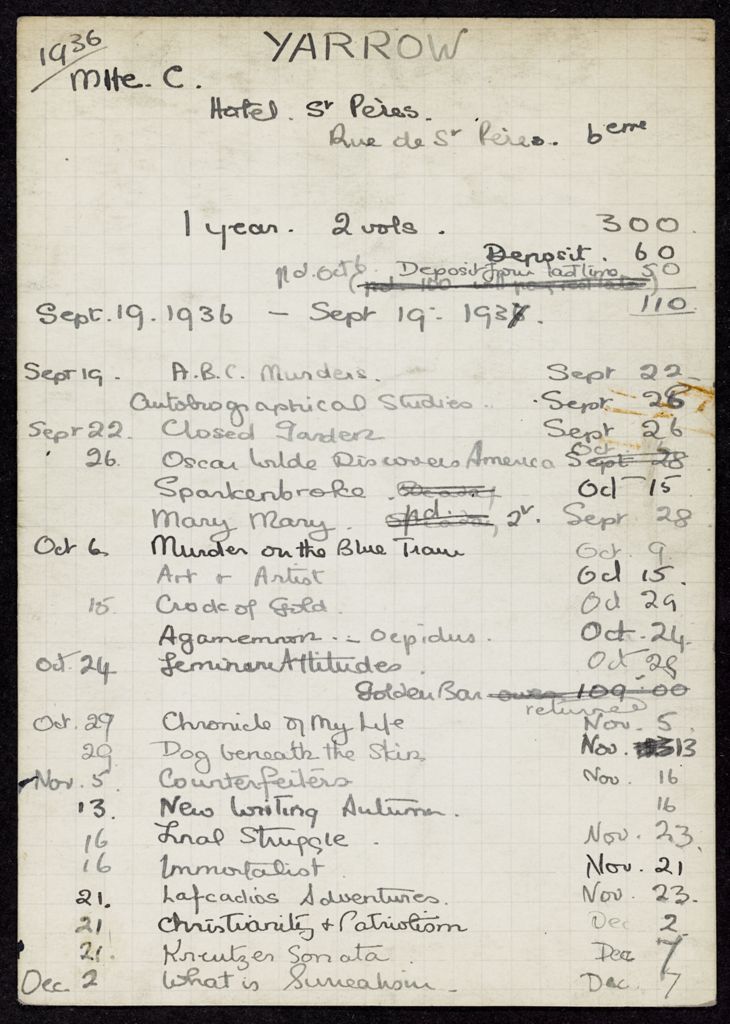 1936
YARROW
Mlle. C.
Hotel. St Pères.
Rue de St Pères. 6eme
1 year. 2 vols. 300
Deposit. 60
pd. Oct 6. Deposit from last time 50
110
Sept. 19. 1936 — Sept 19. 1937.
Sept 19. A.B.C. Murders. Sept 22
Autobiographical Studies. Sept 26
Sept 22. Closed Garden Sept 26
26. Oscar Wilde Discovers America Sept 28 Oct. 6
Sparkenbroke Oct 15
Mary Mary. pd. 2v. Sept 28
Oct 6 Murder on the Blue Train Oct. 9
Art & Artist Oct 15.
15. Crock of Gold. Oct 29
Agamemnon - Oepidus. Oct. 24
Oct. 24 Feminine Attitudes. Oct 29
Golden Bar owes 109.00
returned
Oct. 29 Chronicle of My Life Nov. 5
29 Dog beneath the Skin Nov. 13
Nov. 5. Counterfeiters Nov. 16
13. New Writing Autumn. 16
16 Final Struggle. Nov. 23
16 Immortalist Nov. 21
21. Lafcadios Adventures. Nov. 23.
21 Christianity & Patriotism Dec 2
21. Kreutzer Sonata Dec 7
Dec. 2 What is Surrealism. Dec. 7